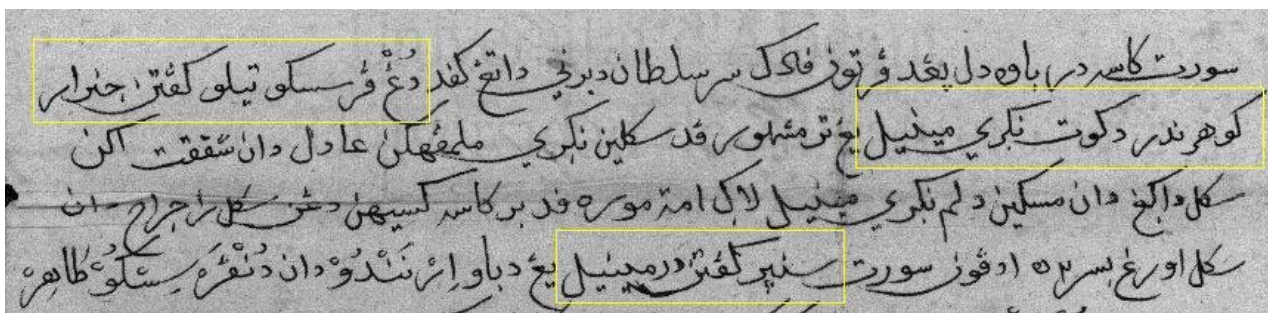 سورت كاسه در باوه دل يڠد ڤرتون ڤادك سر سلطان دبرني داتڠ كڤد دُڠْ ڤرسسكو تيلو كڤتن جنرار
كوهرندر دكوت نكري مينيل يڠ تر مشهور ڤد سكلين نكري ملمڤهكن عادل دان شفقت اكن
سكل داكڠ دان مسكين دالم نكري مينيل لاك امة موره ڤد بركاسه كسيهن دڠن سكل راج٢ دان
سكل اورڠ بسر٢ه ادڤون سورت سنيير كڤتن در مينيل يڠ دباو اِرْنَنْدُوْ دان دُنْ ڤْرَسِسْكُوْ ظاهر